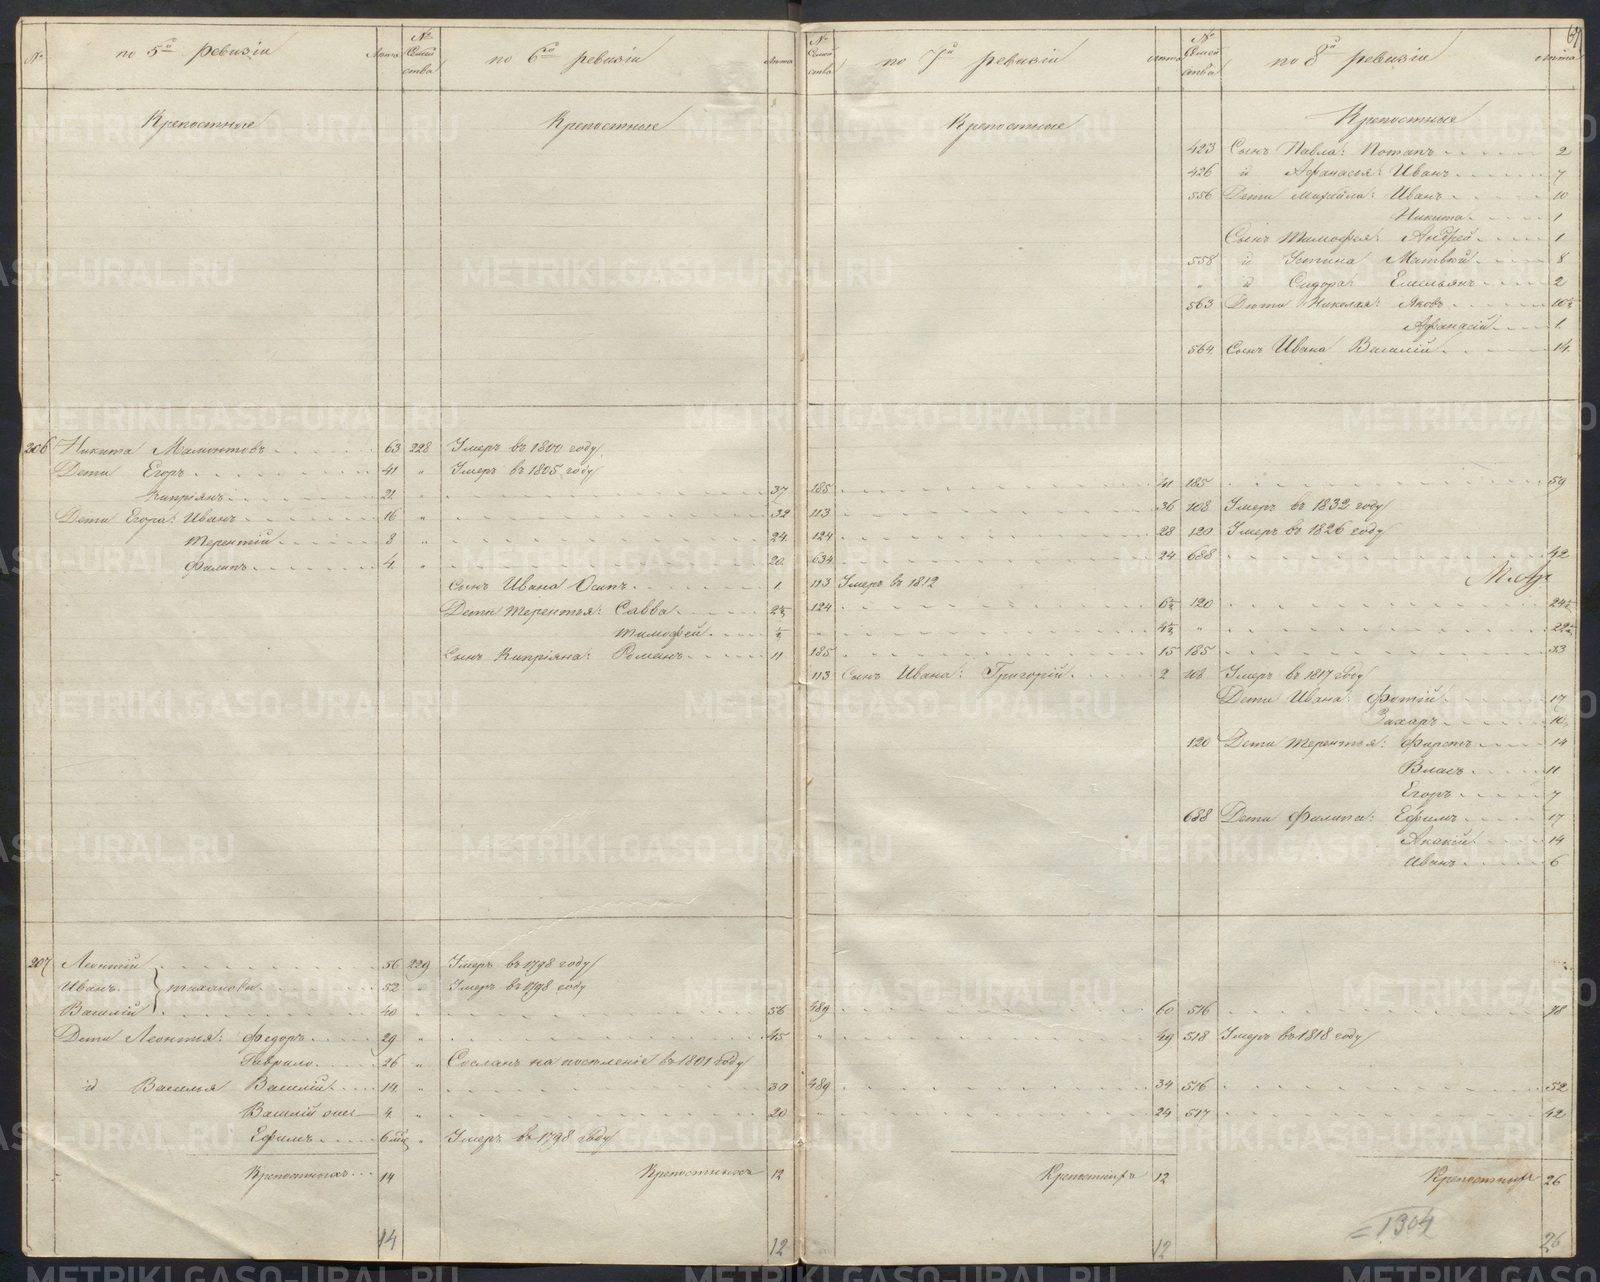 № по 5й ревизіи Лѣта № Семейства по 6й ревизіи Лѣта
№ Семейства по 7й ревизіи Лѣта № Семейства по 8й ревизіи Лѣта
Крепостные Крепостные Крепостные Крепостные
423 Сынъ Павла: Потапъ 2
426 и Афанасья: Иванъ 7
556 Дети Михайла: Иванъ 10
Никита 1
Сынъ Тимофея: Андрей 1
558 и Устина Матвѣй 8
" и Сидора: Емельянъ 2
563 Дети Николая: Яковъ 10½
Афанасій 1
564 Сынъ Ивана Василій 14
206 Никита Мамонтовъ 63 228 Умеръ въ 1800 году
Дети Егоръ 41 " Умеръ въ 1805 году
Кипріянъ 21 " 37 185 41 185 59
Дети Егора: Иванъ 16 " 32 113 36 108 Умеръ въ 1832 году
Терентій 8 " 24 124 28 120 Умеръ въ 1826 году
Филипъ 4 " 20 634 24 688 42
Сынъ Ивана Осипъ 1 113 Умеръ въ 1812
Дети Терентья: Савва 2½ 124 6½ 120 24½
Тимофей ½ " 4½ " 22½
Сынъ Кипріяна: Романъ 11 185 15 185 33
113 Сынъ Ивана: Григорій 2 108 Умеръ въ 1817 году
Дети Ивана: Фотій 17
Захаръ 10
120 Дети Терентья: Фирстъ 14
Власъ 11
Егоръ 7
688 Дети Филипа: Ефимъ 17
Акакій 14
Иванъ 6
207 Леонтій 56 229 Умеръ въ 1798 году
Иванъ Тихановы 52 " Умеръ въ 1798 году
Василій 40 56 489 60 516 78
Дети Леонтья: Федоръ 29 " 45 " 49 518 Умеръ въ 1818 году
Гаврило 26 " Сосланъ на поселеніе въ 1801 году
и Василья Василій 14 " 30 489 34 516 52
Василій онъ 4 " 20 " 24 517 42
Ефимъ 6 " Умеръ въ 1798 году
Крепостныхъ 14 Крепостныхъ 12 Крепостныхъ 12 Крепостныхъ 26
=1304
14 12 12 26
METRIKI.GASO-URAL.RU